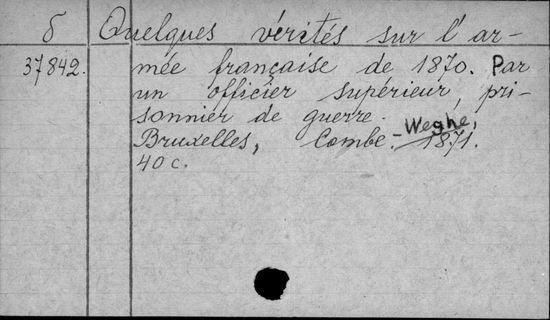 б Quelques vérités sur l'ar-
37842. mée française de 1870. Par
un officier supérieur, pri-
sonnier de guerre.
Bruxelles, Combe-Weghe, 1871.
40 c.